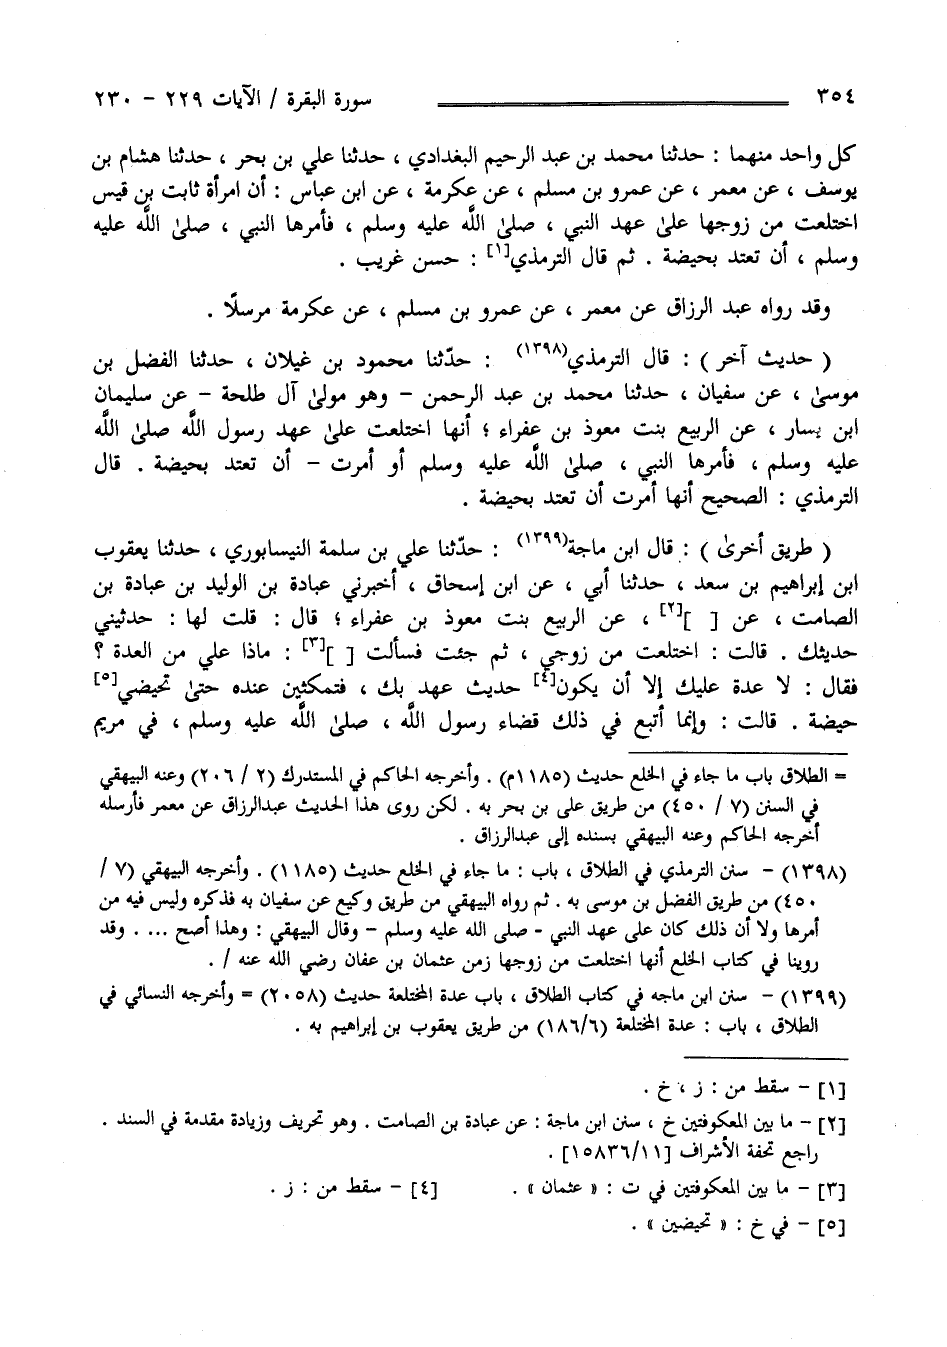 ٣٥٤ سورة البقرة / الآيات ٢٢٩ - ٢٣٠
كل واحد منهما : حدثنا محمد بن عبد الرحيم البغدادي ، حدثنا علي بن بحر ، حدثنا هشام بن
يوسف ، عن معمر ، عن عمرو بن مسلم ، عن عكرمة ، عن ابن عباس : أن امرأة ثابت بن قيس
اختلعت من زوجها علىٰ عهد النبي ، صلىٰ اللَّه عليه وسلم ، فأمرها النبي ، صلىٰ اللَّه عليه
وسلم ، أن تعتد بحيضة . ثم قال الترمذي[١] : حسن غريب .
وقد رواه عبد الرزاق عن معمر ، عن عمرو بن مسلم ، عن عكرمة مرسلًا .
( حديث آخر ) : قال الترمذي(١٣٩٨) : حدّثنا محمود بن غيلان ، حدثنا الفضل بن
موسىٰ ، عن سفيان ، حدثنا محمد بن عبد الرحمن - وهو مولىٰ آل طلحة - عن سليمان
ابن يسار ، عن الربيع بنت معوذ بن عفراء ؛ أنها اختلعت علىٰ عهد رسول اللَّه صلىٰ اللَّه
عليه وسلم ، فأمرها النبي ، صلىٰ اللَّه عليه وسلم أو أمرت - أن تعتد بحيضة . قال
الترمذي : الصحيح أنها أمرت أن تعتد بحيضة .
( طريق أخرىٰ ) : قال ابن ماجة(١٣٩٩) : حدّثنا علي بن سلمة النيسابوري ، حدثنا يعقوب
ابن إبراهيم بن سعد ، حدثنا أبي ، عن ابن إسحاق ، أخبرني عبادة بن الوليد بن عبادة بن
الصامت ، عن [ ][٢] ، عن الربيع بنت معوذ بن عفراء ؛ قال : قلت لها : حدثيني
حديثك . قالت : اختلعت من زوجي ، ثم جئت فسألت [ ][٣] : ماذا علي من العدة ؟
فقال : لا عدة عليك إلا أن يكون[٤] حديث عهد بك ، فتمكثين عنده حتىٰ تحيضي[٥]
حيضة . قالت : وإنما أتبع في ذلك قضاء رسول اللَّه ، صلىٰ اللَّه عليه وسلم ، في مريم
= الطلاق باب ما جاء في الخلع حديث (١١٨٥م) . وأخرجه الحاكم في المستدرك (٢ / ٢٠٦) وعنه البيهقي
في السنن (٧ / ٤٥٠) من طريق على بن بحر به . لكن روى هذا الحديث عبدالرزاق عن معمر فأرسله
أخرجه الحاكم وعنه البيهقي بسنده إلى عبدالرزاق .
(١٣٩٨) - سنن الترمذي في الطلاق ، باب : ما جاء في الخلع حديث (١١٨٥) . وأخرجه البيهقي (٧ /
٤٥٠) من طريق الفضل بن موسى به . ثم رواه البيهقي من طريق وكيع عن سفيان به فذكره وليس فيه من
أمرها ولا أن ذلك كان على عهد النبي - صلى الله عليه وسلم - وقال البيهقي : وهذا أصح .... وقد
روينا في كتاب الخلع أنها اختلعت من زوجها زمن عثمان بن عفان رضي الله عنه / .
(١٣٩٩) - سنن ابن ماجه في كتاب الطلاق ، باب عدة المختلعة حديث (٢٠٥٨) = وأخرجه النسائي في
الطلاق ، باب : عدة المختلعة (١٨٦/٦) من طريق يعقوب بن إبراهيم به .
[١] - سقط من : ز ، خ .
[٢] - ما بين المعكوفتين خ ، سنن ابن ماجة : عن عبادة بن الصامت . وهو تحريف وزيادة مقدمة في السند .
راجع تحفة الأشراف [١٥٨٣٦/١١] .
[٣] - ما بين المعكوفتين في ت : « عثمان » . [٤] - سقط من : ز .
[٥] - في خ : « تحيضين » .